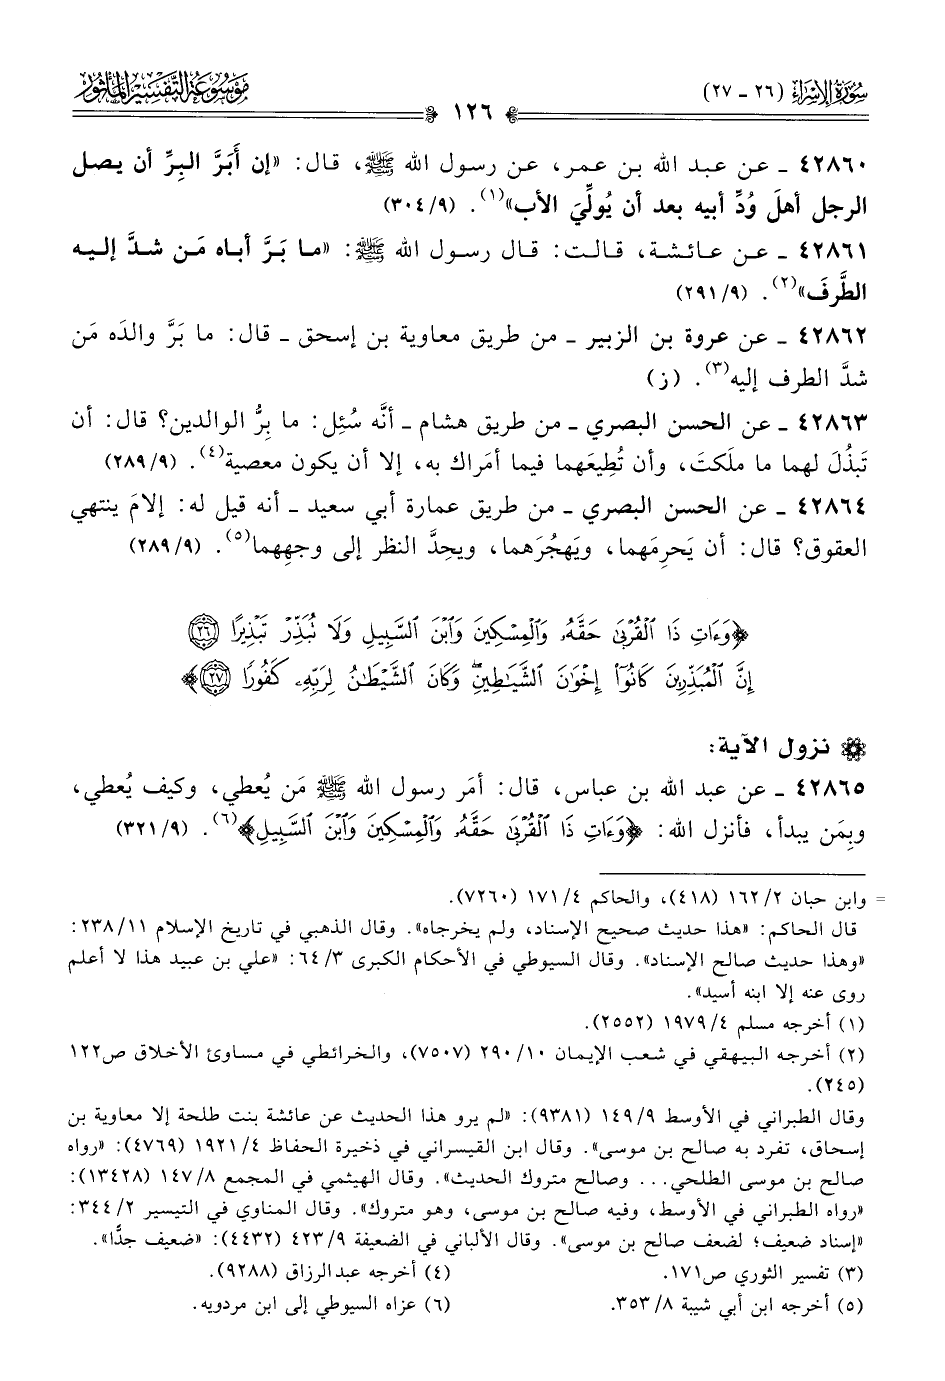 سُورَةُ الإِسْرَاءِ (٢٦ - ٢٧)
١٢٦
مَوْسُوعَةُ التَّفْسِيرِ المَأْثُورِ
٤٢٨٦٠ - عن عبد الله بن عمر، عن رسول الله ﷺ، قال: «إن أَبَرَّ البِرِّ أن يصل
الرجل أهلَ وُدِّ أبيه بعد أن يُولِّيَ الأب»(١). (٣٠٤/٩)
٤٢٨٦١ - عن عائشة، قالت: قال رسول الله ﷺ: «ما بَرَّ أباه مَن شدَّ إليه
الطَّرفَ»(٢). (٢٩١/٩)
٤٢٨٦٢ - عن عروة بن الزبير - من طريق معاوية بن إسحق - قال: ما بَرَّ والدَه مَن
شدَّ الطرف إليه(٣). (ز)
٤٢٨٦٣ - عن الحسن البصري - من طريق هشام - أنَّه سُئِل: ما بِرُّ الوالدين؟ قال: أن
تَبذُلَ لهما ما ملَكتَ، وأن تُطِيعَهما فيما أمَراك به، إلا أن يكون معصية(٤). (٢٨٩/٩)
٤٢٨٦٤ - عن الحسن البصري - من طريق عمارة أبي سعيد - أنه قيل له: إلامَ ينتهي
العقوق؟ قال: أن يَحرِمَهما، ويَهجُرَهما، ويحِدَّ النظر إلى وجهِهما(٥). (٢٨٩/٩)
﴿وَءَاتِ ذَا ٱلْقُرْبَىٰ حَقَّهُۥ وَٱلْمِسْكِينَ وَٱبْنَ ٱلسَّبِيلِ وَلَا تُبَذِّرْ تَبْذِيرًا ٢٦
إِنَّ ٱلْمُبَذِّرِينَ كَانُوٓا۟ إِخْوَٰنَ ٱلشَّيَٰطِينِ ۖ وَكَانَ ٱلشَّيْطَٰنُ لِرَبِّهِۦ كَفُورًا ٢٧﴾
نزول الآية:
٤٢٨٦٥ - عن عبد الله بن عباس، قال: أمَر رسول الله ﷺ مَن يُعطي، وكيف يُعطي،
وبِمَن يبدأ، فأنزل الله: ﴿وَءَاتِ ذَا ٱلْقُرْبَىٰ حَقَّهُۥ وَٱلْمِسْكِينَ وَٱبْنَ ٱلسَّبِيلِ﴾(٦). (٣٢١/٩)
= وابن حبان ١٦٢/٢ (٤١٨)، والحاكم ١٧١/٤ (٧٢٦٠).
قال الحاكم: «هذا حديث صحيح الإسناد، ولم يخرجاه». وقال الذهبي في تاريخ الإسلام ٢٣٨/١١:
«وهذا حديث صالح الإسناد». وقال السيوطي في الأحكام الكبرى ٦٤/٣: «علي بن عبيد هذا لا أعلم
روى عنه إلا ابنه أسيد».
(١) أخرجه مسلم ١٩٧٩/٤ (٢٥٥٢).
(٢) أخرجه البيهقي في شعب الإيمان ٢٩٠/١٠ (٧٥٠٧)، والخرائطي في مساوئ الأخلاق ص١٢٢
(٢٤٥).
وقال الطبراني في الأوسط ١٤٩/٩ (٩٣٨١): «لم يرو هذا الحديث عن عائشة بنت طلحة إلا معاوية بن
إسحاق، تفرد به صالح بن موسى». وقال ابن القيسراني في ذخيرة الحفاظ ١٩٢١/٤ (٤٧٦٩): «رواه
صالح بن موسى الطلحي... وصالح متروك الحديث». وقال الهيثمي في المجمع ١٤٧/٨ (١٣٤٢٨):
«رواه الطبراني في الأوسط، وفيه صالح بن موسى، وهو متروك». وقال المناوي في التيسير ٣٤٤/٢:
«إسناد ضعيف؛ لضعف صالح بن موسى». وقال الألباني في الضعيفة ٤٢٣/٩ (٤٤٣٢): «ضعيف جدًّا».
(٣) تفسير الثوري ص١٧١. (٤) أخرجه عبدالرزاق (٩٢٨٨).
(٥) أخرجه ابن أبي شيبة ٣٥٣/٨. (٦) عزاه السيوطي إلى ابن مردويه.